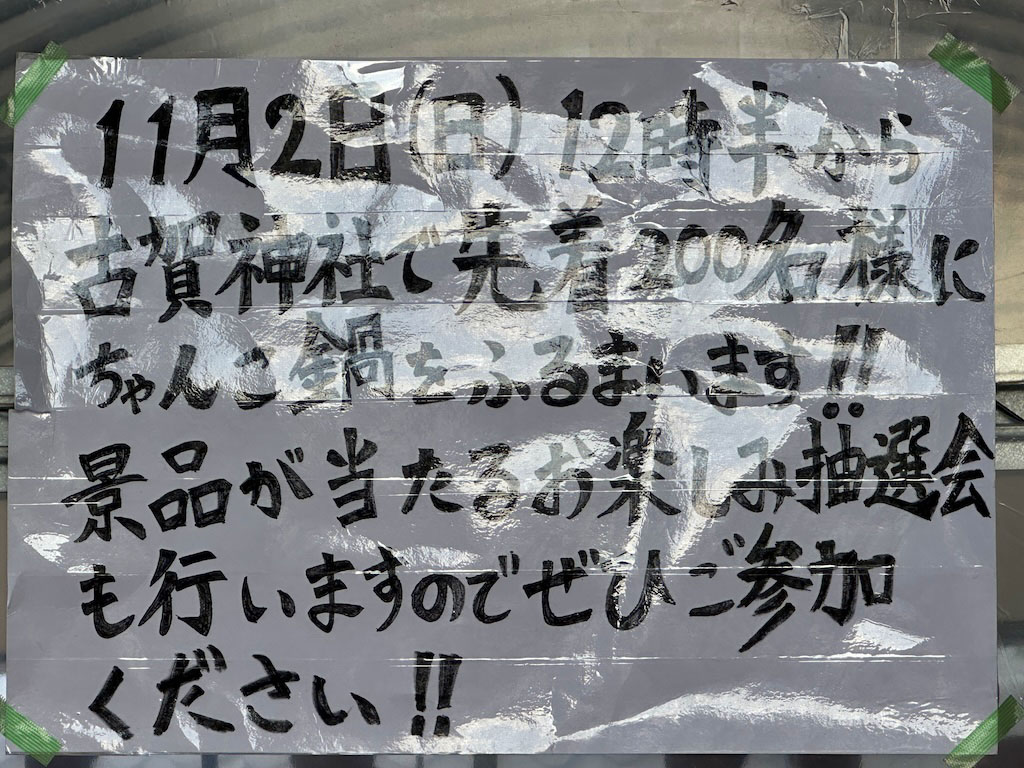 11月2日(日)12時半から
古賀神社で先着200名様に
ちゃんこ鍋をふるまいます!!
景品が当たるお楽しみ抽選会
も行いますのでぜひご参加
ください!!